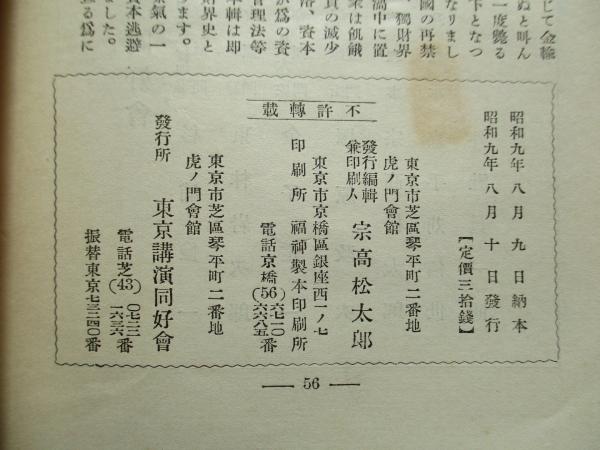 じて金輸
ぬと叫ん
一度斃る
下となつ
なりまし
國の再禁
、獨財界
渦中に置
來は飢餓
員の減少
落、資本
が爲の資
管理法等
本輯は即
財界史と
ります。
景氣の一
資本逃避
ました。
至る爲に
不許轉載
昭和九年八月九日納本
昭和九年八月十日發行
【定價三拾錢】
東京市芝區琴平町二番地
虎ノ門會館
發行編輯
兼印刷人
宗高松太郎
東京市京橋區銀座西一ノ七
印刷所 福神製本印刷所
電話京橋(56)六七一〇 六六八五番
東京市芝區琴平町二番地
虎ノ門會館
發行所 東京講演同好會
電話芝(43)〇七二三 一六三六番
振替東京七三二四〇番
— 56 —